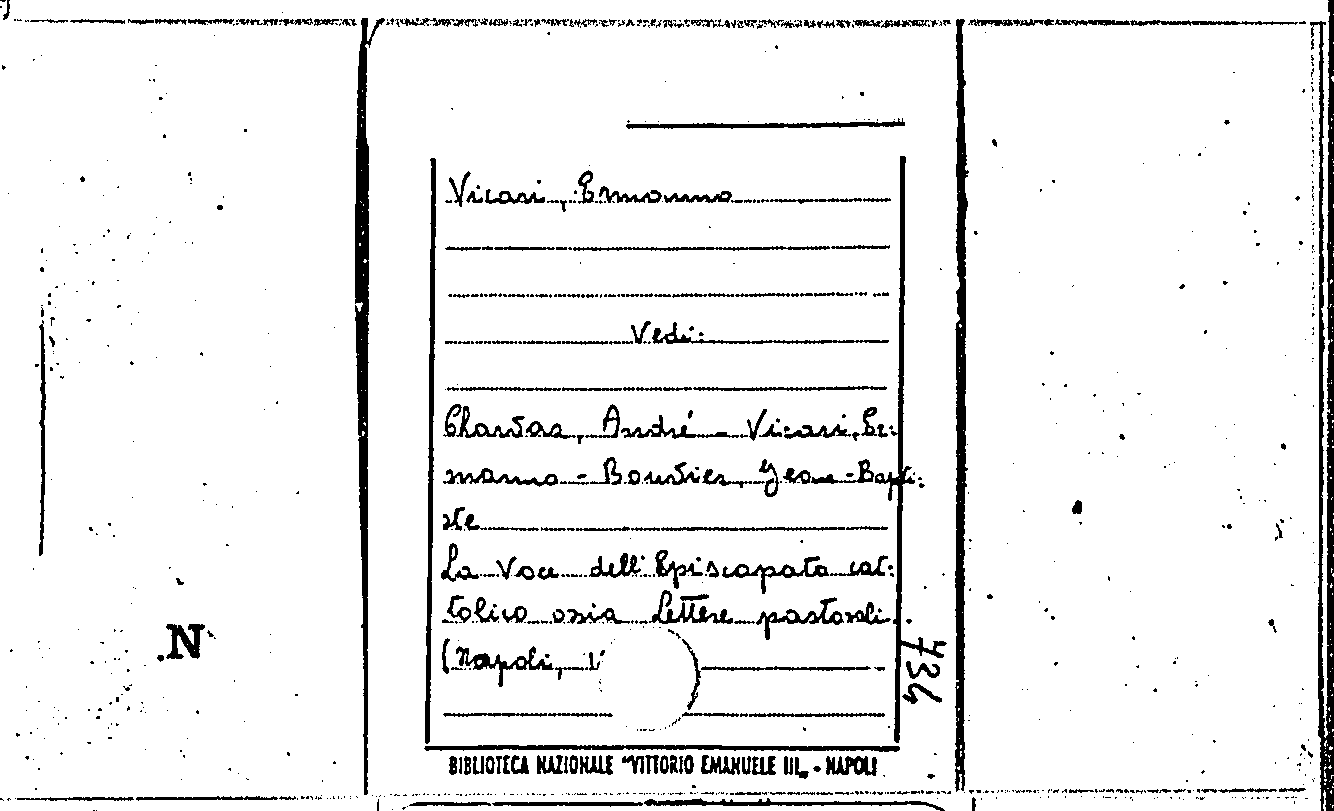 Vicari, Ermanno
Vedi:
Charvaz, André - Vicari, Er:
manno - Bouvier, Jean-Bapti:
ste
La Voce dell'Episcopato cat:
tolico ossia Lettere pastorali.
(Napoli, 1
734
.N
BIBLIOTECA NAZIONALE "VITTORIO EMANUELE III„ - NAPOLI